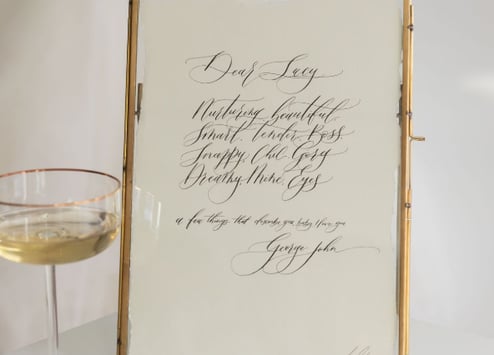 Dear Lucy
Nurturing, beautiful,
Smart, Tender, Boss
Snappy, Chil Gorg
Dreamy, Mine, Eyes
a few things that describe you baby I love you
George John